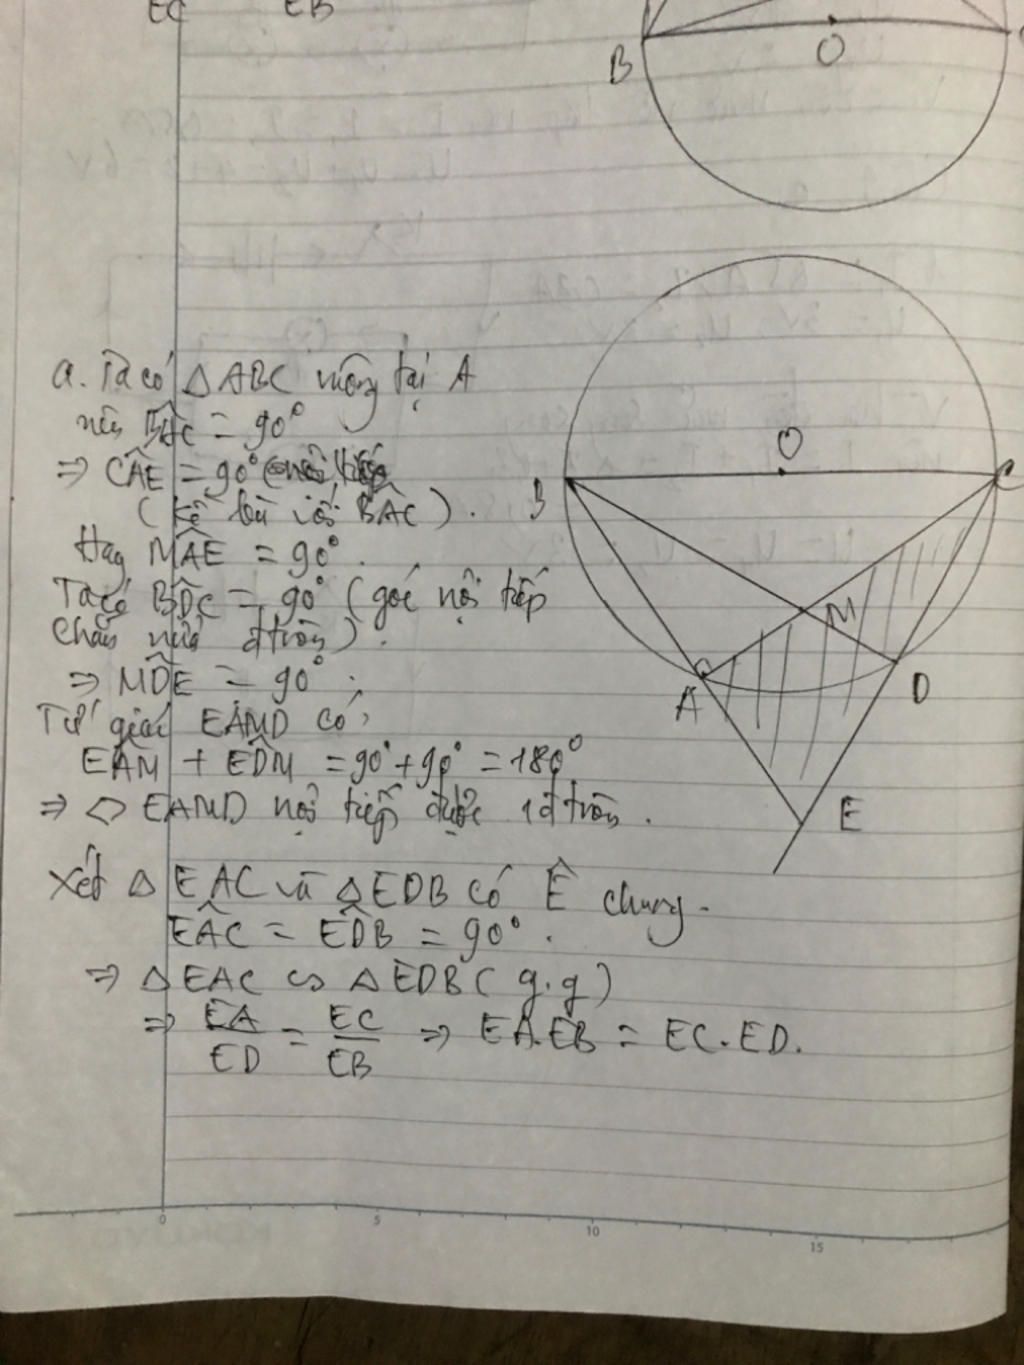 EC EB
B O
a. Ta có △ABC vuông tại A
nên BÂC = 90°
⇒ CÂE = 90°
(kề bù với BÂC).
Hay MÂE = 90°.
Ta có BD̂C = 90° (góc nội tiếp
chắn nửa đtròn).
⇒ MD̂E = 90°.
Tứ giác EAMD có,
EÂM + ED̂M = 90° + 90° = 180°
⇒ ◇ EAMD nội tiếp được 1 đtròn.
Xét △EAC và △EDB có Ê chung.
EÂC = ED̂B = 90°.
⇒ △EAC ∽ △EDB (g.g)
⇒ EA/ED = EC/EB ⇒ EA.EB = EC.ED.
O
B C
M
A D
E
0 5 10 15